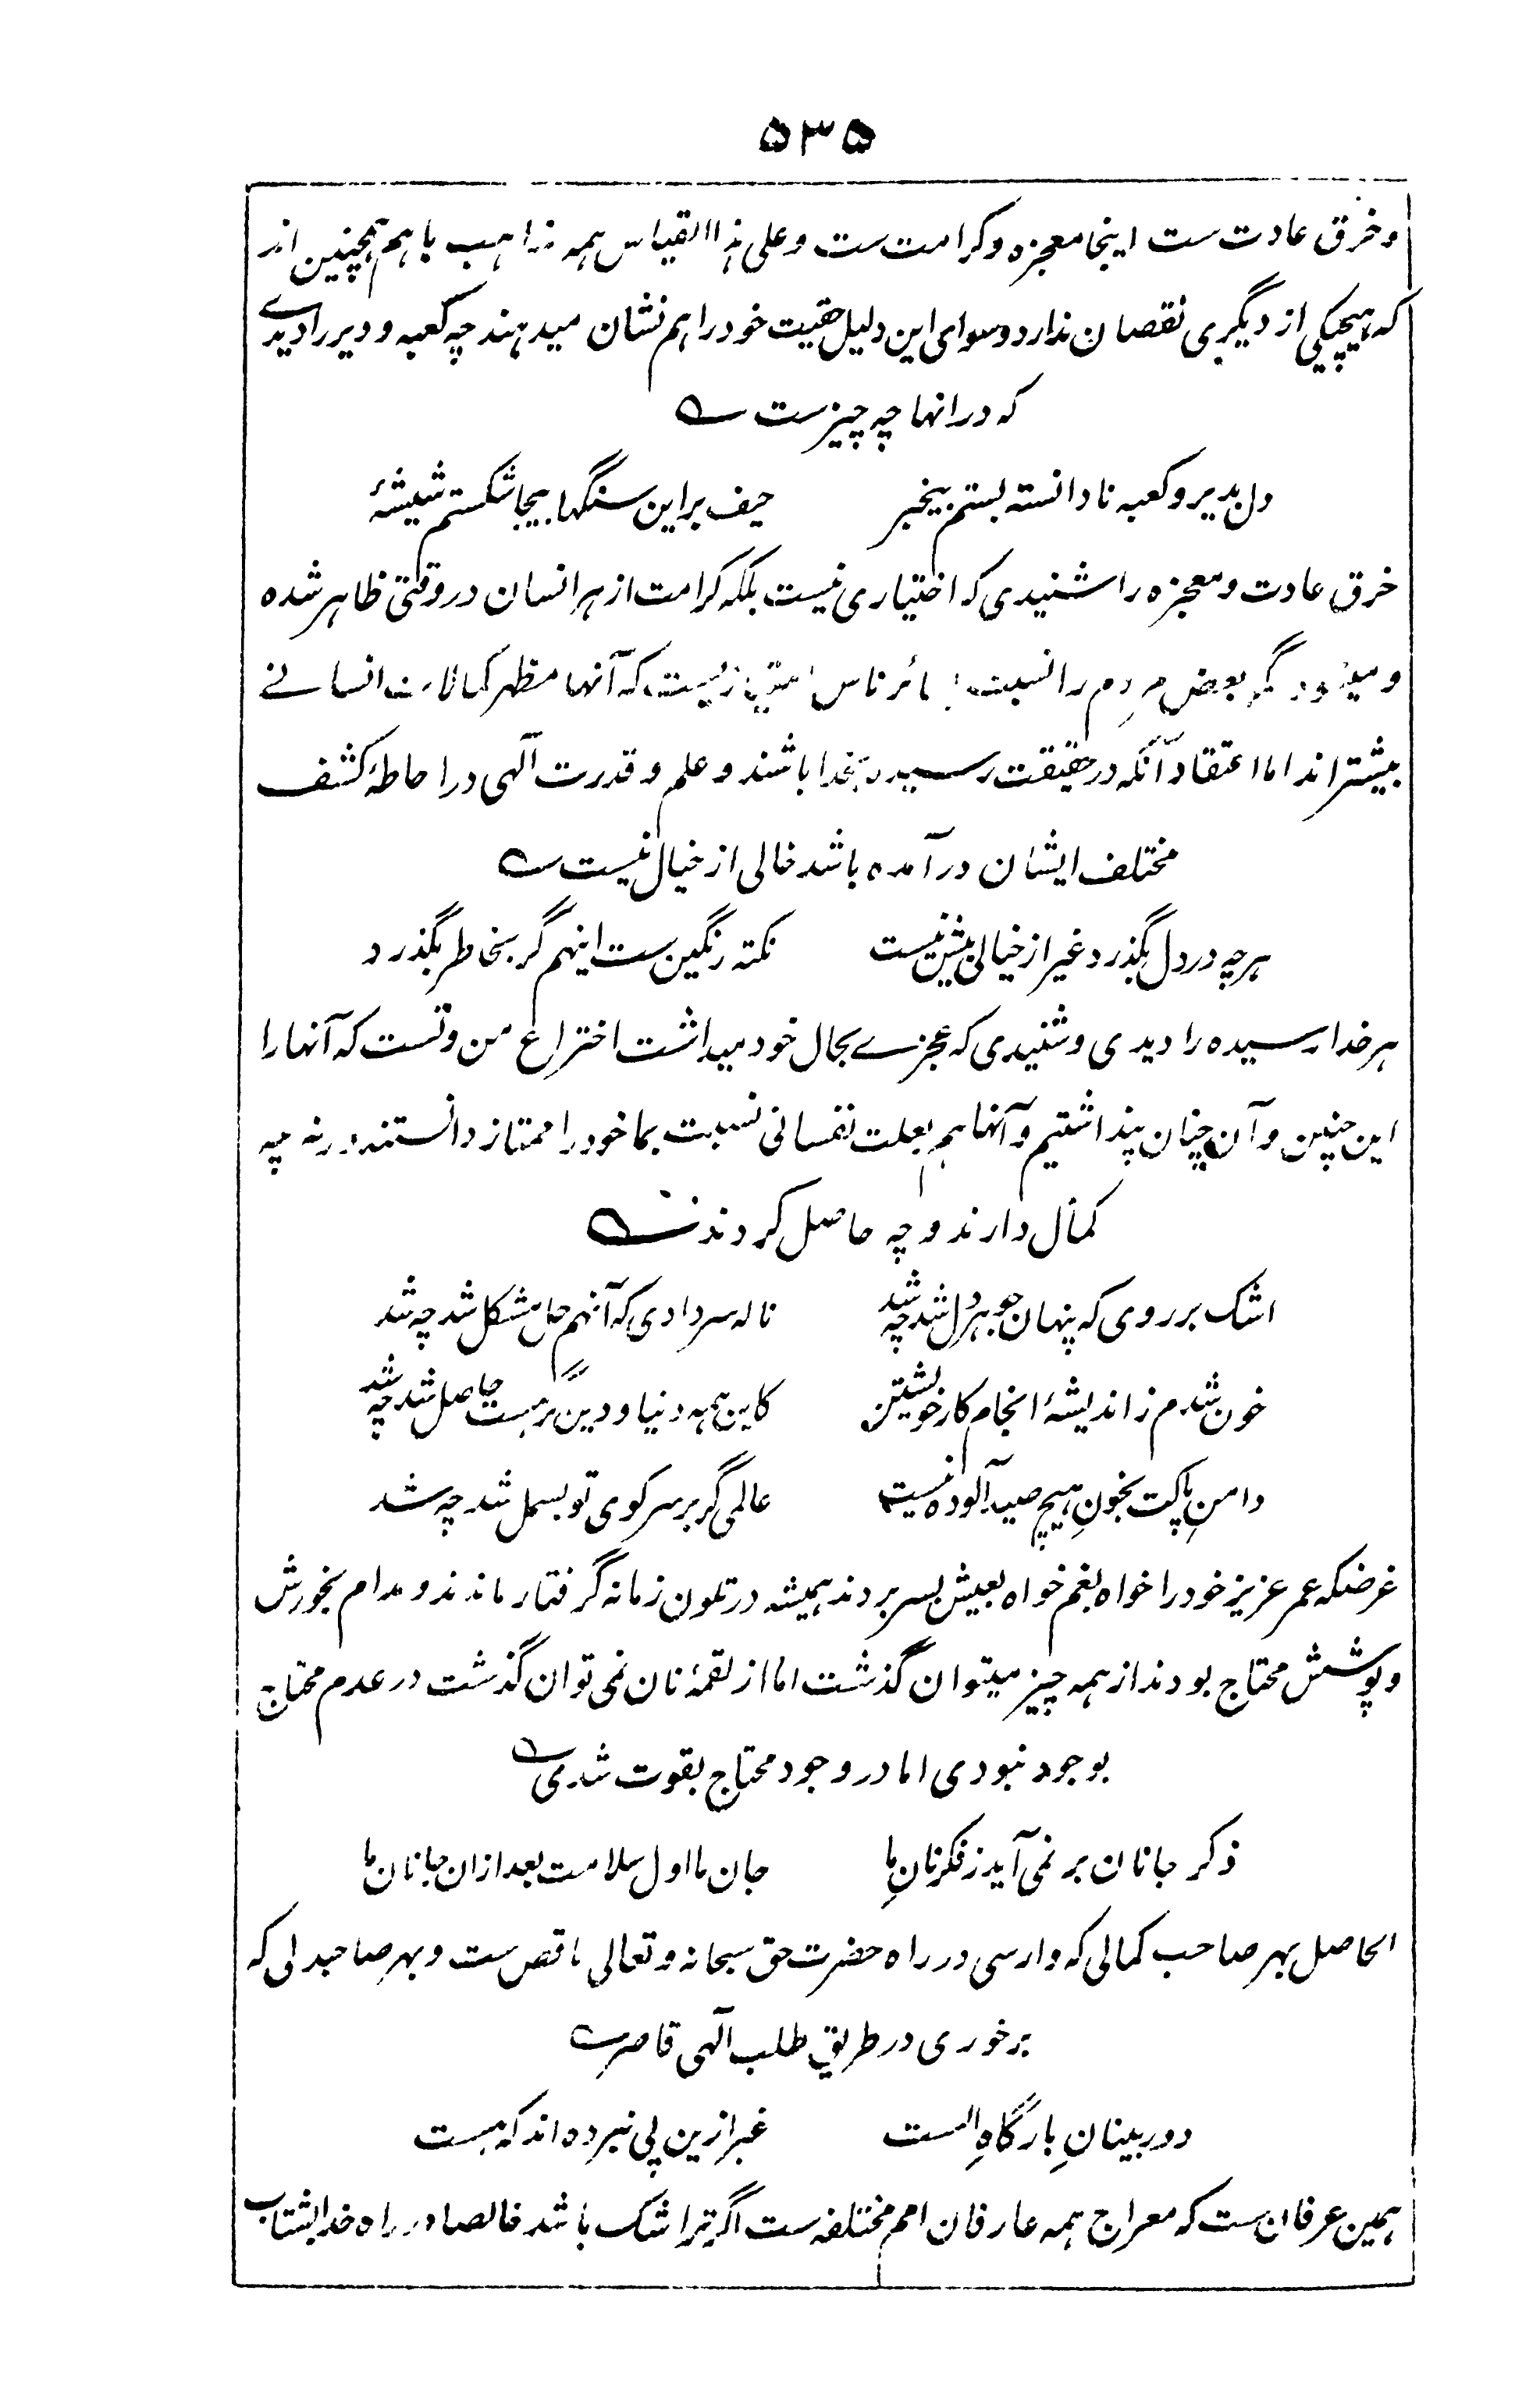 ۵۳۵
و خرق عادت ست اینجا معجزه و کرامت ست و علی هذا القیاس همه مذاهب با هم همچنین اند
که هیچیکی از دیگری نقصان ندارد و سوای این دلیل حقیت خود را هم نشان میدهند چه کعبه و دیر را دیدے
که در انها چه چیزست
دل بدیر و کعبه نادانسته بستم بیخبر حیف بر این سنگها بیجا شکستم شیشهٔ
خرق عادت و معجزه را شنیدی که اختیاری نیست بلکه کرامت از هر انسان در وقتی ظاهر شده
و میشود گر بعض مردم را نسبت بسائر ناس زیست که آنها مظهر کمالات انسانے
بیشتر اند اما اعتقاد آنکه در حقیقت رسیده بخدا باشند و علم و قدرت آلهی در احاطهٔ کشف
مختلف ایشان در آمده باشد خالی از خیال نیست
هرچه در دل بگذرد غیر از خیالی بیش نیست نکته رنگین ست اینهم گر بخاطر بگذرد
هر خدا رسیده را دیدی و شنیدی که عجزے بحال خود میداشت اختراع من و تست که آنها را
این چنین و آن چنان پنداشتیم و آنها هم بعلت نفسانی نسبت بما خود را ممتاز دانستند ورنه چه
کمال دارند و چه حاصل کردند
اشک بر روی که پنهان جوهر دل شد چه شد ناله سر دادی که آنهم حل مشکل شد چه شد
خون شدم ز اندیشهٔ انجام کار خویشتن کاین همه دنیا و دین گر هست حاصل شد چه شد
دامنِ پاکت بخونِ هیچ صید آلوده نیست عالمی گر بر سر کوی تو بسمل شد چه شد
غرضکه عمر عزیز خود را خواه بغم خواه بعیش بسر بردند همیشه در تلون زمانه گرفتار ماندند و مدام بخورش
و پوشش محتاج بودند از همه چیز میتوان گذشت اما از لقمهٔ نان نمی توان گذشت در عدم محتاج
بوجود نبودی اما در وجود محتاج بقوت شدی
ذکر جانان بر نمی آید ز فکر نانِ ما جان ما اول سلامت بعد ازان جانان ما
الحاصل بهر صاحب کمالی که وارسی در راه حضرت حق سبحانه و تعالی ناقص ست و بهر صاحبدلی که
برخوری در طریق طلب آلهی قاصر
دوربینانِ بارگاهِ الست غیر ازین پی نبرده اند که هست
همین عرفان ست که معراج همه عارفان امم مختلفه ست اگر ترا شک باشد خالصا در راه خدا بشتاب